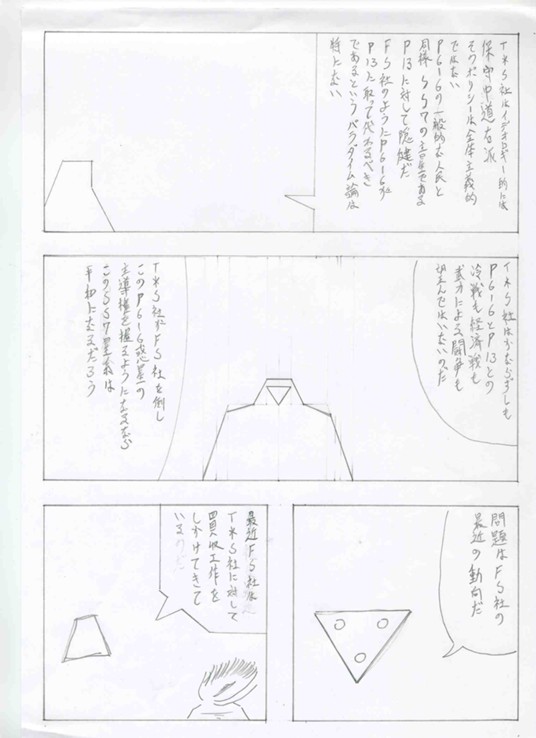 TKS社はイデオロギー的には
保守中道右派
そのポリシーは全体主義的
ではない
P616の一般的な人民と
同様 SS7の主星である
P13に対して穏健だ
FS社のようにP616が
P13に取って代わるべき
であるというパラダイム論は
特にない
TKS社はかならずしも
P616とP13との
冷戦も経済戦も
武力による闘争も
望んではいないのだ
TKS社がFS社を倒し
このP616惑星の
主導権を握るようになるなら
このSS7星系は
平和になるだろう
問題はFS社の
最近の動向だ
最近FS社は
TKS社に対して
買収工作を
しかけてきて
いる